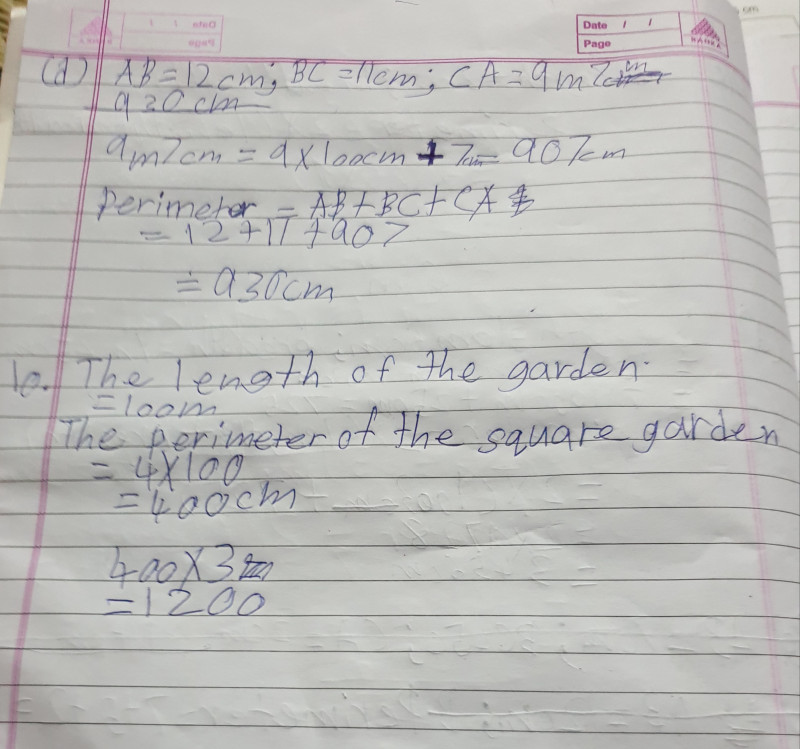 Date / /
Page
(d) AB = 12cm; BC = 11cm; CA = 9m7cm
930cm
9m7cm = 9×100cm + 7cm = 907cm
Perimeter = AB + BC + CA
= 12 + 11 + 907
= 930cm
10. The length of the garden.
= 100m
The perimeter of the square garden
= 4×100
= 400cm
400×3
= 1200